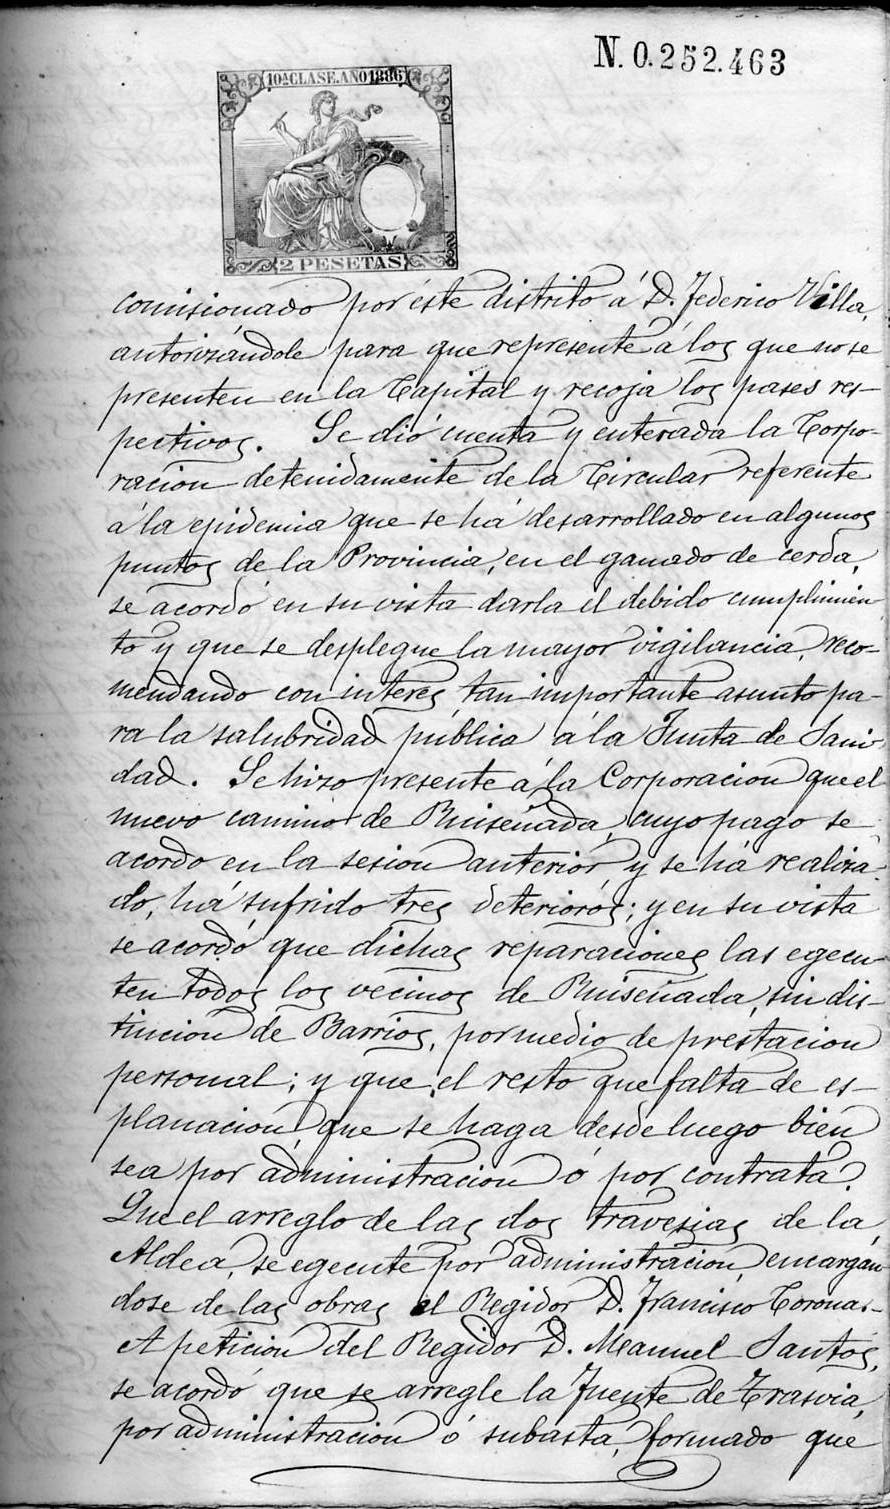 N. 0.252.463
10ª CLASE. AÑO 1886
2 PESETAS
comisionado por éste distrito á D. Federico Villa,
autorizándole para que represente á los que no se
presenten en la Capital y recoja los pases res-
pectivos. Se dió cuenta y enterada la Corpo-
racion detenidamente de la Circular referente
á la epidemia que se há desarrollado en algunos
puntos de la Provincia, en el ganado de cerda,
se acordó en su vista darla el debido cumplimien
to y que se desplegue la mayor vigilancia, reco-
mendando con interes tan importante asunto pa-
ra la salubridad pública á la Junta de Sani-
dad. Se hizo presente á la Corporacion que el
nuevo camino de Ruiseñada, cuyo pago se
acordo en la sesion anterior y se há realiza-
do, há sufrido tres deterioros; y en su vista
se acordó que dichas reparaciones las egecu-
ten todos los vecinos de Ruiseñada, sin dis-
tincion de Barrios, por medio de prestacion
personal; y que el resto que falta de es-
planacion, que se haga desde luego bien
sea por administracion ó por contrata.
Que el arreglo de las dos travesias de la
Aldea, se egecute por administracion, encargan
dose de las obras el Regidor D. Francisco Corona.-
A peticion del Regidor D. Manuel Santos,
se acordó que se arregle la Fuente de Trasvia,
por administracion ó subasta, formado que